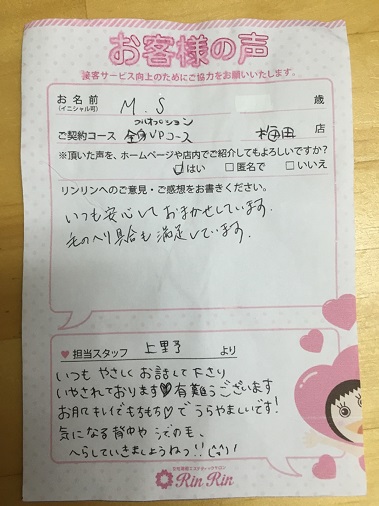 お客様の声
接客サービス向上のためにご協力をお願いいたします。
お名前 M.S 歳
(イニシャル可)
ご契約コース 全身VPコース 梅田 店
※頂いた声を、ホームページや店内でご紹介してもよろしいですか?
はい □匿名で □いいえ
リンリンへのご意見・ご感想をお書きください。
いつも安心しておまかせしています。
毛のへり具合も満足しています。
♥ 担当スタッフ 上里予 より
いつも やさしく お話して下さり
いやされております♡有難うございます
お肌もキレイでもちもち♡でうらやましいです!
気になる背中や うでの毛、
へらしていきましょうねっ!!(^^)!
Rin Rin